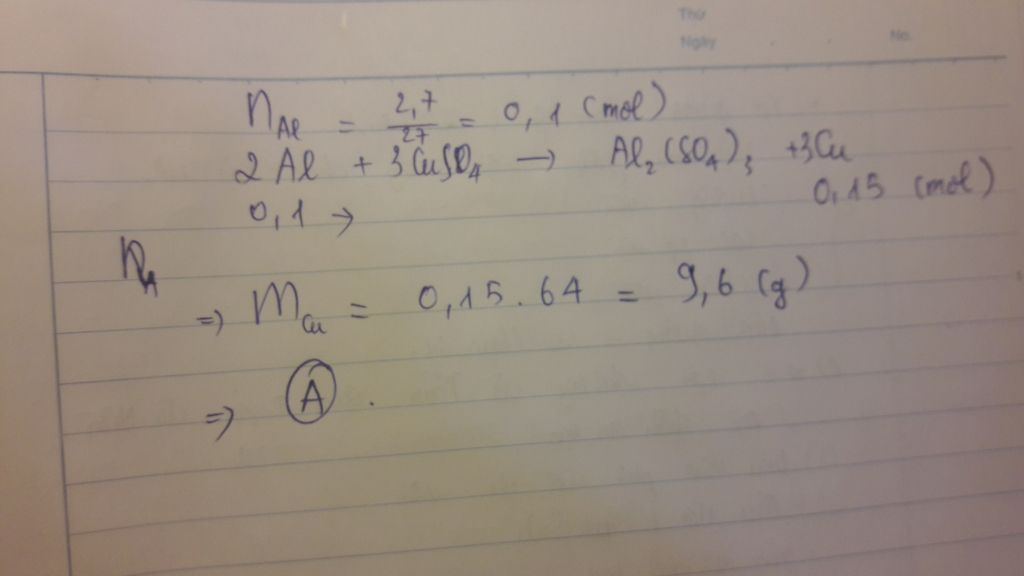 Thứ
Ngày . . No.
n_Al = 2,7/27 = 0,1 (mol)
2Al + 3CuSO₄ → Al₂(SO₄)₃ + 3Cu
0,1 → 0,15 (mol)
=> m_Cu = 0,15 . 64 = 9,6 (g)
=> A .